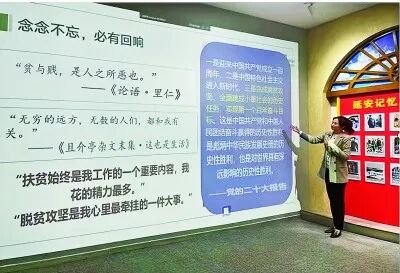 念念不忘，必有回响
“贫与贱，是人之所恶也。”
——《论语·里仁》
“无穷的远方，无数的人们，都和我有
关。”
——《且介亭杂文末集·这也是生活》
“扶贫始终是我工作的一个重要内容，我
花的精力最多。”
“脱贫攻坚是我心里最牵挂的一件大事。”
一是迎来中国共产党成立一百
周年，二是中国特色社会主义
进入新时代，三是完成脱贫攻
坚、全面建成小康社会的历史
任务，实现第一个百年奋斗目
标。这是中国共产党和中国人
民团结奋斗赢得的历史性胜利，
是彪炳中华民族发展史册的历
史性胜利，也是对世界具有深
远影响的历史性胜利。
——党的二十大报告
延安记忆